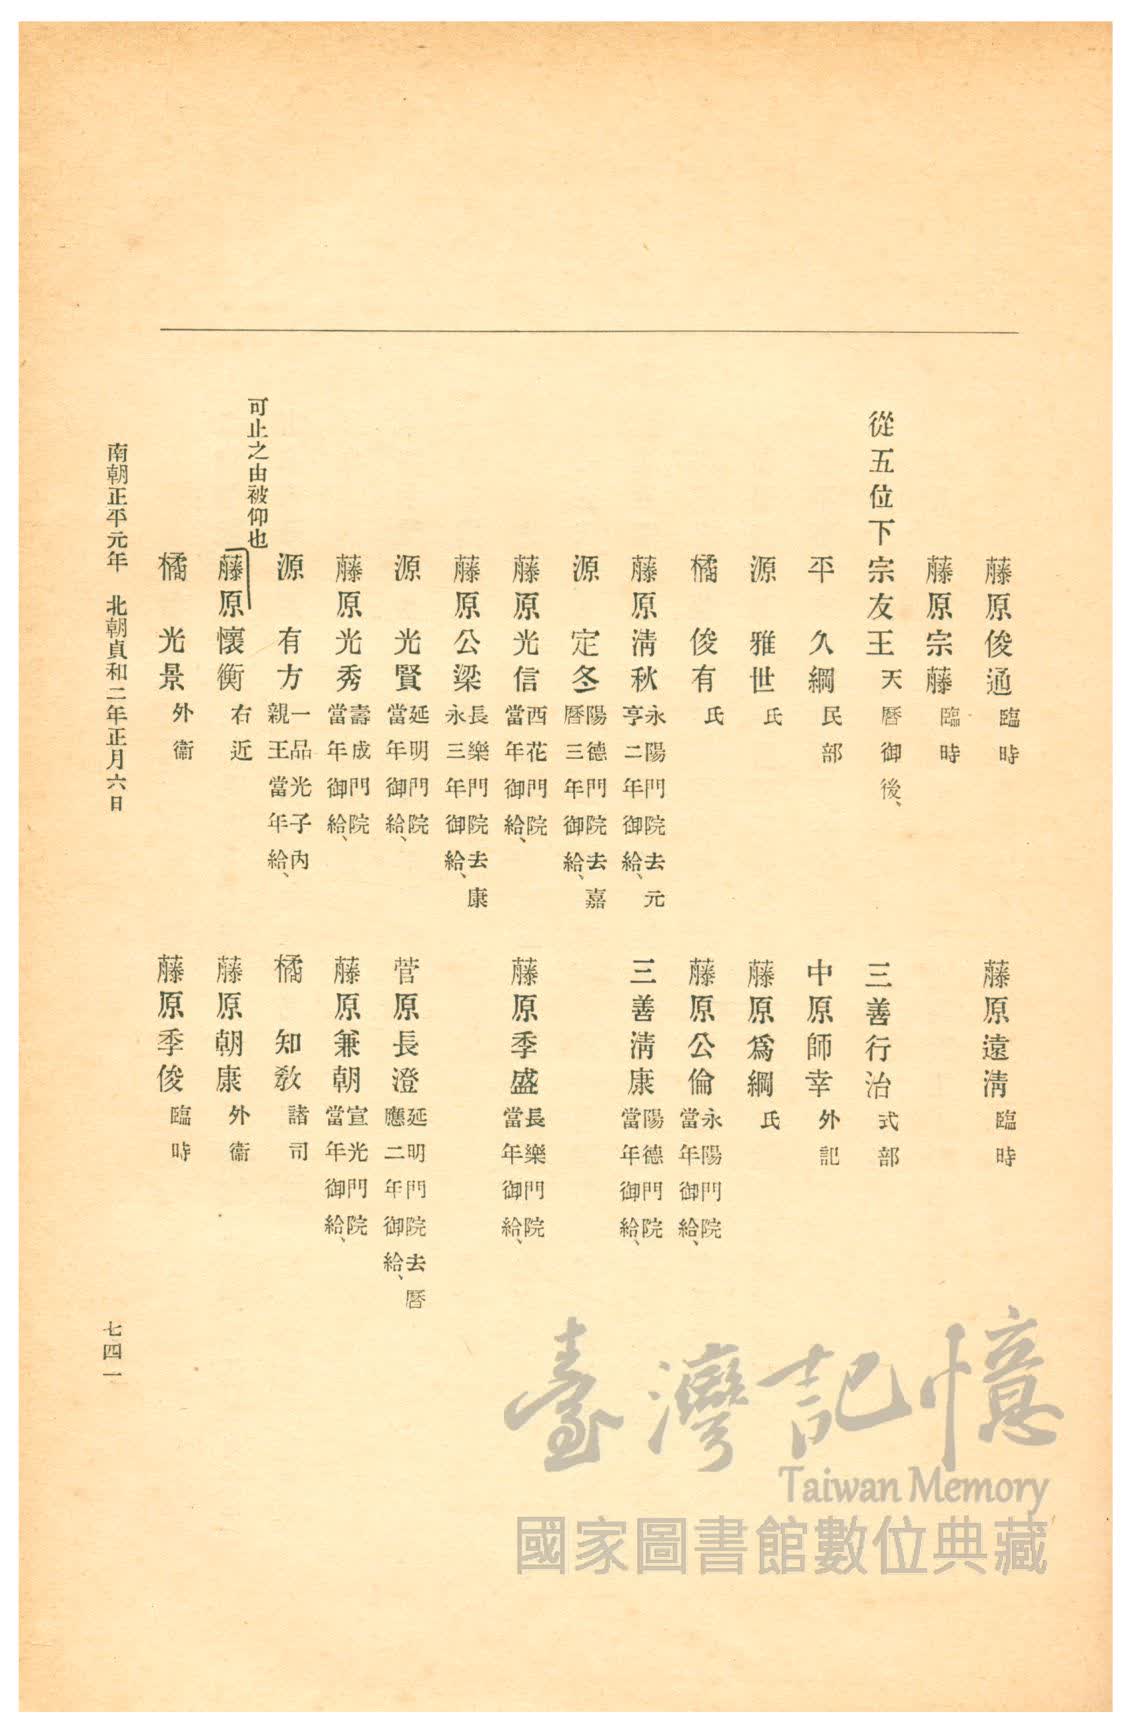 藤原俊通 臨時
藤原遠淸 臨時
藤原宗藤 臨時
從五位下宗友王 天曆御後、
三善行治 式部
平 久綱 民部
中原師幸 外記
源 雅世 氏
藤原爲綱 氏
橘 俊有 氏
藤原公倫 永陽門院當年御給、
藤原淸秋 永陽門院去元亨二年御給、
三善淸康 陽德門院當年御給、
源 定冬 陽德門院去嘉曆三年御給、
藤原光信 西花門院當年御給、
藤原季盛 長樂門院當年御給、
藤原公梁 長樂門院去康永三年御給、
源 光賢 延明門院當年御給、
菅原長澄 延明門院去曆應二年御給、
藤原光秀 壽成門院當年御給、
藤原兼朝 宣光門院當年御給、
源 有方 一品光子內親王當年給、
橘 知敎 諸司
可止之由被仰也
藤原懷衡 右近
藤原朝康 外衞
橘 光景 外衞
藤原季俊 臨時
南朝正平元年 北朝貞和二年正月六日
七四一
臺灣記憶
Taiwan Memory
國家圖書館數位典藏